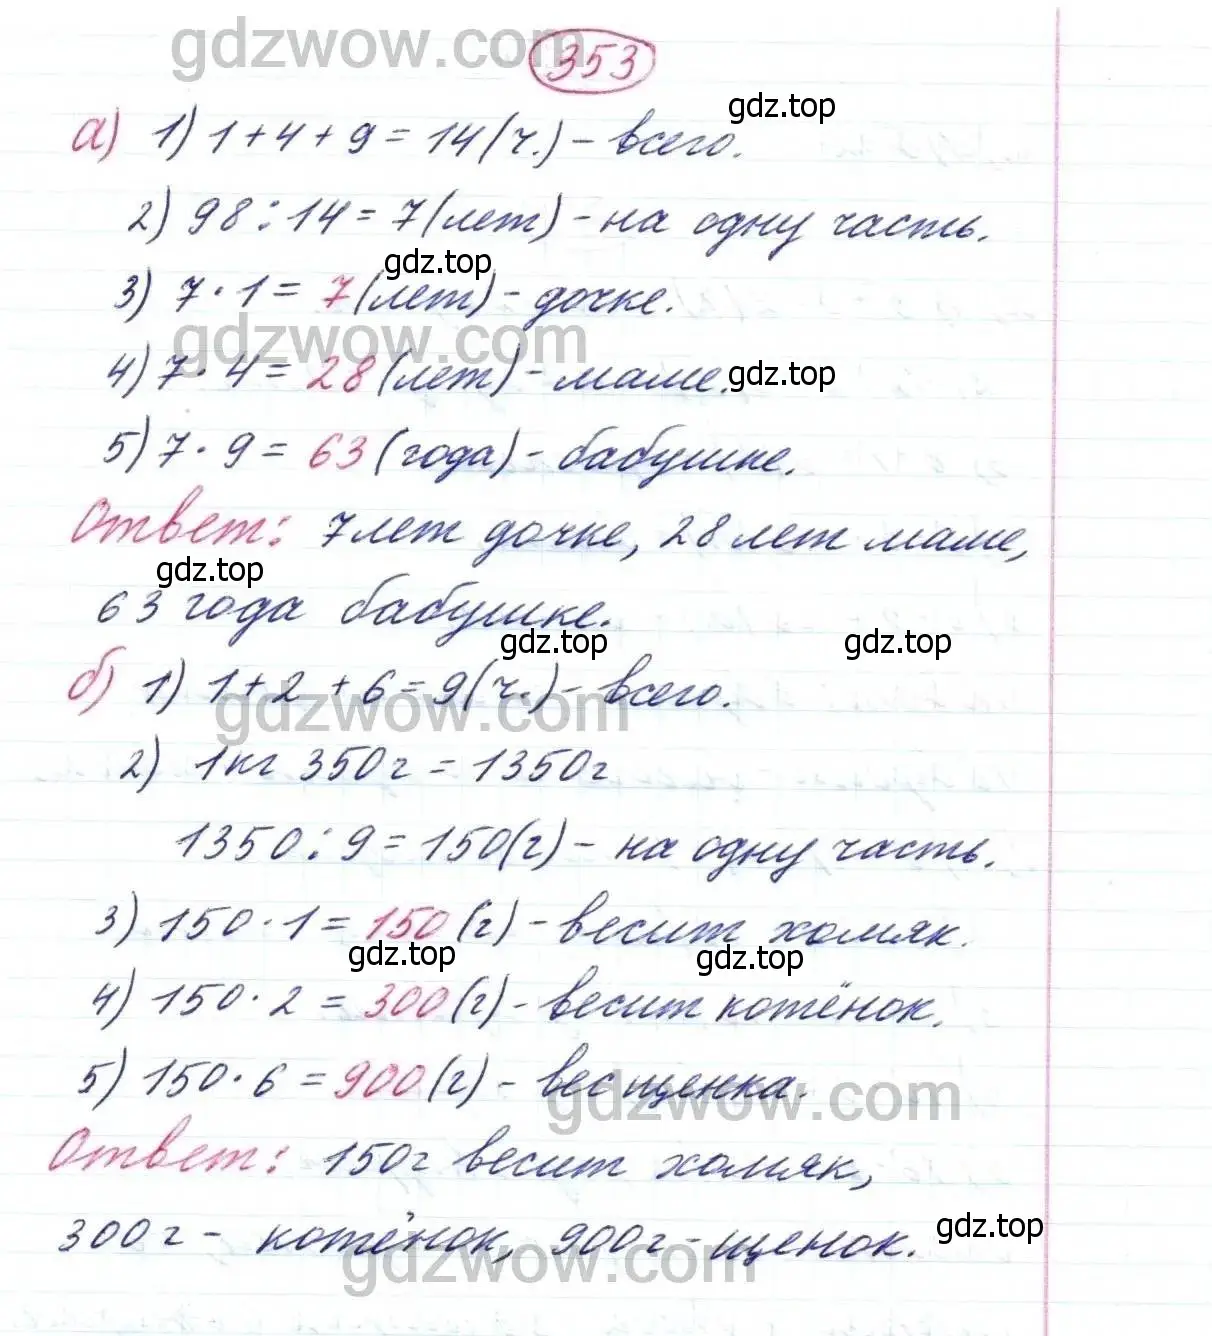 gdzwow.com
353
gdz.top
а) 1) 1+4+9=14(ч.)-всего.
2) 98:14=7(лет)-на одну часть.
gdz.top
3) 7·1=7(лет)-дочке.
gdzwow.com
4) 7·4=28(лет)-маме.
gdz.top
5) 7·9=63(года)-бабушке.
Ответ: 7 лет дочке, 28 лет маме,
gdz.top
63 года бабушке.
gdz.top gdz.top
б) 1) 1+2+6=9(ч.)-всего.
gdzwow.com
2) 1кг 350г=1350г
1350:9=150(г)-на одну часть.
3) 150·1=150(г)-весит хомяк.
gdz.top gdz.top
4) 150·2=300(г)-весит котёнок.
5) 150·6=900(г)-вес щенка.
gdzwow.com
Ответ: 150г весит хомяк,
gdz.top
300г- котёнок, 900г-щенок.
gdzwow.com